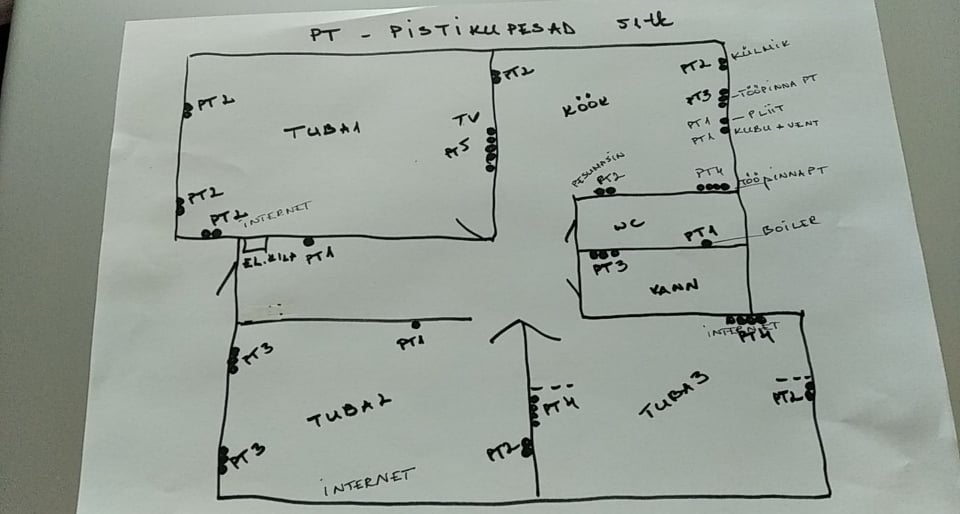 PT - PISTIKUPESAD 51tk
KÜLMIK
PT2
PT2
PT2
PT3
TÖÖPINNA PT
KÖÖK
TUBA1
TV
PT5
PT1
PLIIT
PT1
KUBU + VENT
PESUMAŠIN
PT2
PT4
TÖÖPINNA PT
PT2
PT2
INTERNET
WC
PT1
BOILER
EL.KILP
PT1
PT3
VANN
INTERNET
PT4
PT1
PT3
TUBA2
PT4
TUBA3
PT2
PT3
PT2
INTERNET